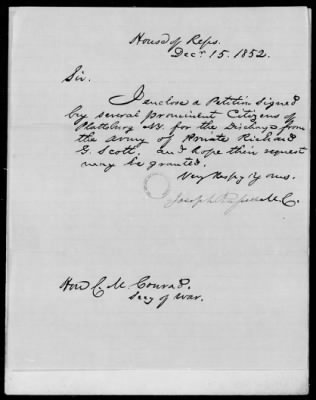 House of Reps.
Decr 15. 1852.
Sir.
I enclose a Petition signed
by several prominent Citizens of
Plattsburg NY. for the Discharge from
the army of Private Richard
G. Scott. and hope their request
may be granted.
Very Respy Yours.
Joseph Russell M.C.
Hon C. M. Conrad.
Secy of War.